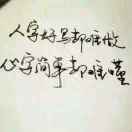 人字好写却难做
心字简单却难懂